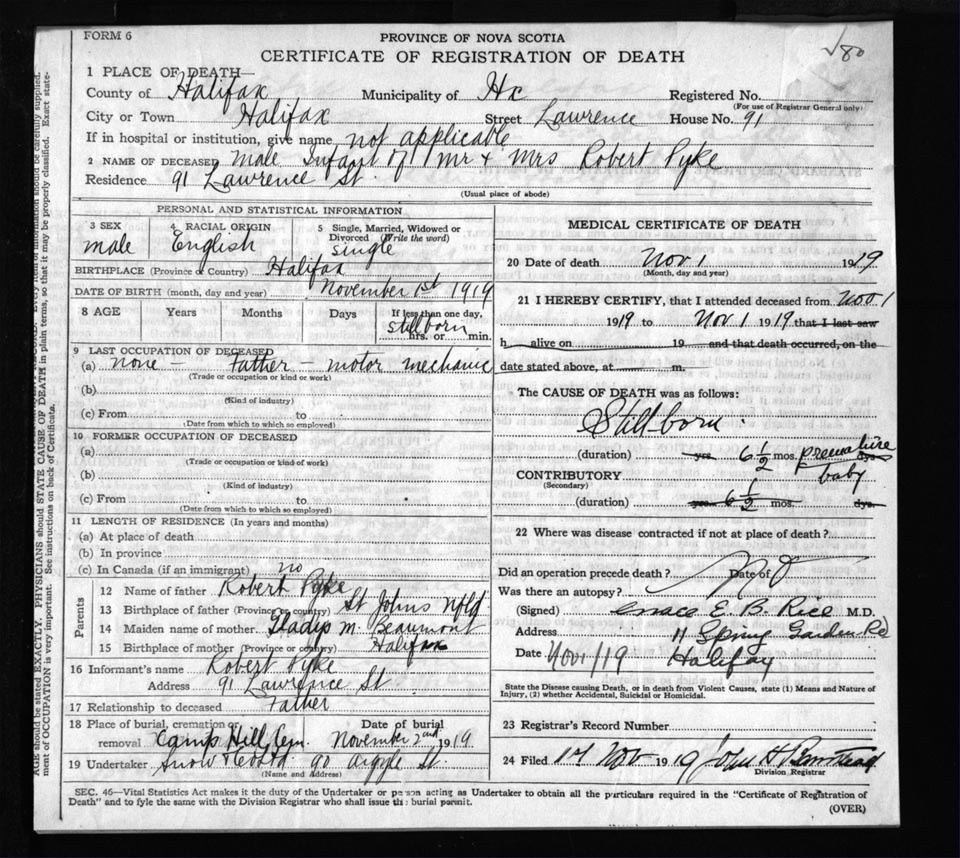 FORM 6
PROVINCE OF NOVA SCOTIA
80
CERTIFICATE OF REGISTRATION OF DEATH
1 PLACE OF DEATH—
County of Halifax Municipality of Hx Registered No.
(For use of Registrar General only)
City or Town Halifax Street Lawrence House No. 91
If in hospital or institution, give name not applicable
2 NAME OF DECEASED Male Infant of Mr & Mrs Robert Pyke
Residence 91 Lawrence St.
(Usual place of abode)
PERSONAL AND STATISTICAL INFORMATION
3 SEX male
4 RACIAL ORIGIN English
5 Single, Married, Widowed or Divorced (Write the word) single
BIRTHPLACE (Province or Country) Halifax
DATE OF BIRTH (month, day and year) November 1st 1919
8 AGE Years Months Days If less than one day, stillborn hrs. or min.
9 LAST OCCUPATION OF DECEASED
(a) none – Father – motor mechanic
(Trade or occupation or kind or work)
(b)
(Kind of industry)
(c) From to
(Date from which to which so employed)
10 FORMER OCCUPATION OF DECEASED
(a)
(Trade or occupation or kind of work)
(b)
(Kind of industry)
(c) From to
(Date from which to which so employed)
11 LENGTH OF RESIDENCE (In years and months)
(a) At place of death
(b) In province
(c) In Canada (if an immigrant) no
Parents
12 Name of father Robert Pyke
13 Birthplace of father (Province or country) St Johns Nfld
14 Maiden name of mother Gladys M. Beaumont
15 Birthplace of mother (Province or country) Halifax
16 Informant's name Robert Pyke
Address 91 Lawrence St
17 Relationship to deceased Father
18 Place of burial, cremation or removal Camp Hill Cem. Date of burial November 2nd 1919
19 Undertaker Snow & 90 Argyle St.
(Name and Address)
MEDICAL CERTIFICATE OF DEATH
20 Date of death Nov 1 1919
(Month, day and year)
21 I HEREBY CERTIFY, that I attended deceased from Nov 1
1919 to Nov 1 1919 that I last saw
h alive on 19 and that death occurred, on the
date stated above, at m.
The CAUSE OF DEATH was as follows:
Stillborn
(duration) yrs. 6 1/2 mos. premature dys. baby
CONTRIBUTORY
(Secondary)
(duration) yrs. 6 1/2 mos. dys.
22 Where was disease contracted if not at place of death?
Did an operation precede death? Date of
Was there an autopsy? No
(Signed) Grace E. B. Rice M.D.
Address 11 Spring Garden Rd
Date Nov 1/19 Halifax
State the Disease causing Death, or in death from Violent Causes, state (1) Means and Nature of
Injury, (2) whether Accidental, Suicidal or Homicidal.
23 Registrar's Record Number
24 Filed 1st Nov 1919 John H
Division Registrar
SEC. 46—Vital Statistics Act makes it the duty of the Undertaker or person acting as Undertaker to obtain all the particulars required in the "Certificate of Registration of
Death" and to fyle the same with the Division Registrar who shall issue the burial permit.
(OVER)
AGE should be stated EXACTLY. PHYSICIANS should STATE CAUSE OF DEATH in plain terms, so that it may be properly classified. Exact state-
ment of OCCUPATION is very important. See instructions on back of Certificate.